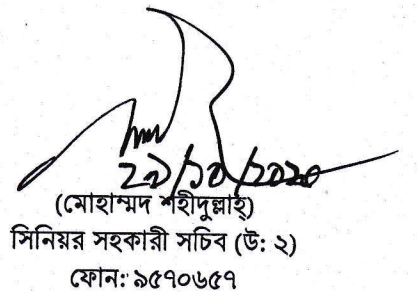 ২৯/১০/২০২০
(মোহাম্মদ শহীদুল্লাহ্)
সিনিয়র সহকারী সচিব (উ: ২)
ফোন: ৯৫৭০৬৫৭